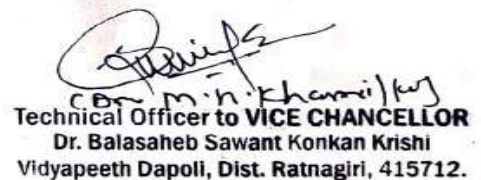 (Dr. M. n. Khamvilkar)
Technical Officer to VICE CHANCELLOR
Dr. Balasaheb Sawant Konkan Krishi
Vidyapeeth Dapoli, Dist. Ratnagiri, 415712.